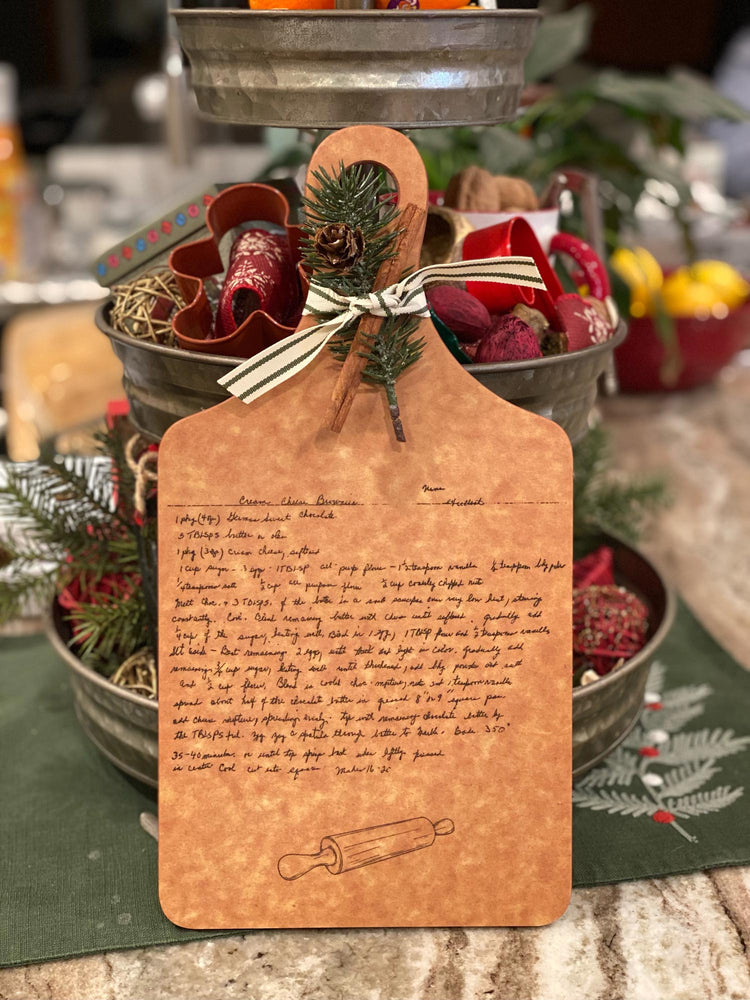 Cream Cheese Brownies
Mama
Excellent
1 pkg (4oz) German Sweet Chocolate
5 TBLSPS butter or oleo
1 pkg (3oz) Cream Cheese, softened
1 cup sugar - 3 eggs - 1 TBLSP all purp flour - 1½ teaspoon vanilla ½ teaspoon bkg powder
¼ teaspoon salt ½ cup all purpose flour ½ cup coarsely chopped nuts
Melt choc. + 3 TBLSPS. of the butter in a small saucepan over very low heat, stirring
constantly. Cool. Blend remaining butter with cheese until softened. Gradually add
¼ cup of the sugar, beating well. Blend in 1 egg, 1 TBLSP flour and ½ teaspoon vanilla
Set aside - Beat remaining 2 eggs, until thick and light in color. Gradually add
remaining ¾ cup sugar, beating until thickened, add bkg powder and salt
and ½ cup flour, Blend in cooled choc. mixture, nuts and 1 teaspoon vanilla
spread about half of the chocolate batter in greased 8" or 9" square pan.
add cheese mixture, spreading evenly. Top with remaining chocolate batter by
the TBLSPS ful. Zig zag a spatula through batter to marble. Bake 350°
35-40 minutes or until top springs back when lightly pressed
in center Cool cut into squares. Makes 16